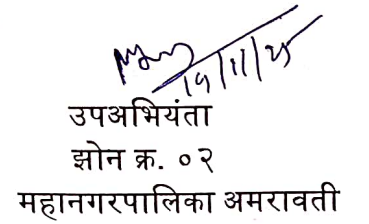 19/11/25
उपअभियंता
झोन क्र. ०२
महानगरपालिका अमरावती